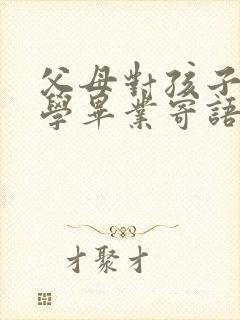 父母對孩子
學畢業寄語
才聚才